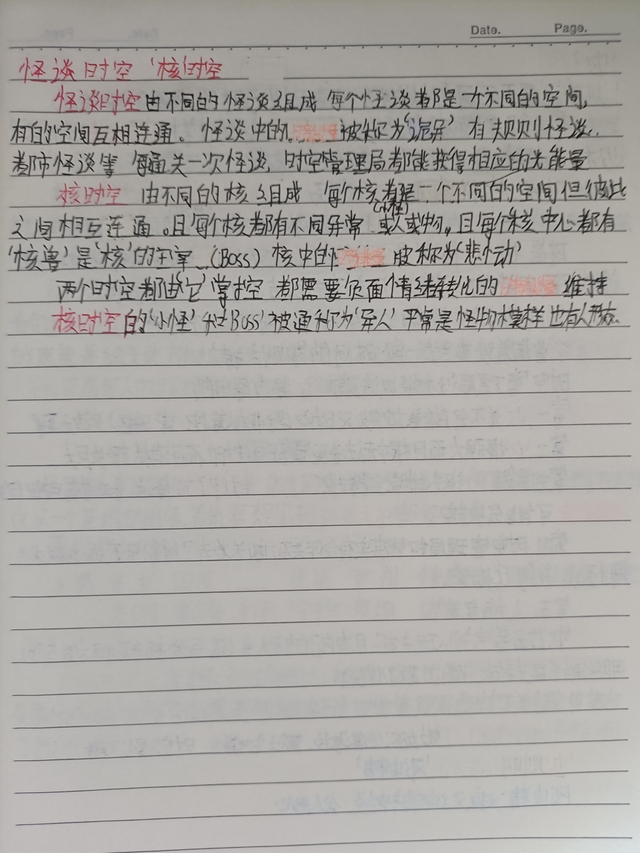 Date.    Page.
怪谈时空 '核'时空
怪谈时空由不同的怪谈组成 每个怪谈都是一个不同的空间,
有的空间互相连通。怪谈中的 被称为'诡异' 有规则怪谈.
都市怪谈等 每通关一次怪谈, 时空管理局都能获得相应的光能量
核时空 由不同的核组成 每个核都是一个不同的空间但彼此
之间相互连通。且每个核都有不同异常 或人或物。且每个核中心都有
'核兽'是'核'的主宰 (Boss) 核中的 被称为'悲动'
两个时空都由'它'掌控 都需要负面情绪转化的 维持
核时空的'小怪'和'Boss'被通称为'异人' 平常是怪物模样也有人形态.